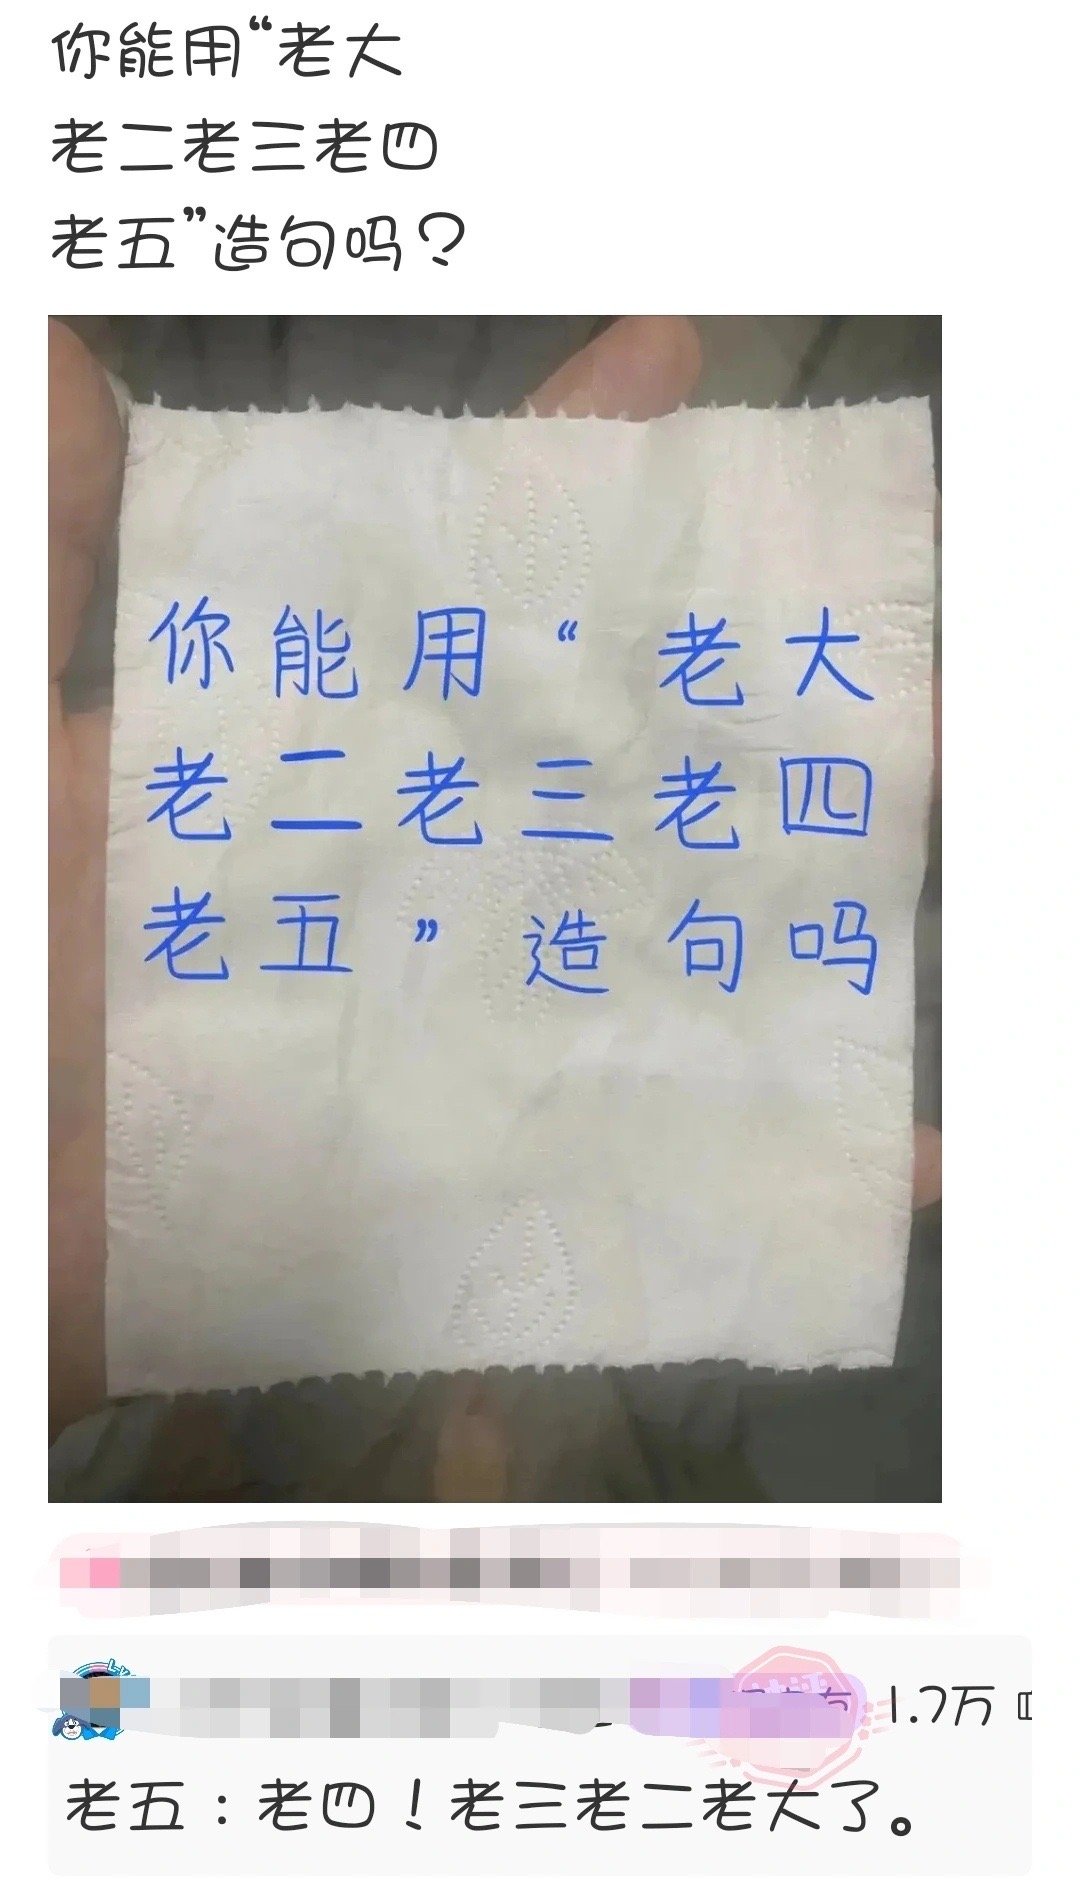 你能用“老大
老二老三老四
老五”造句吗？
你能用“老大
老二老三老四
老五”造句吗
1.7万
老五：老四！老三老二老大了。